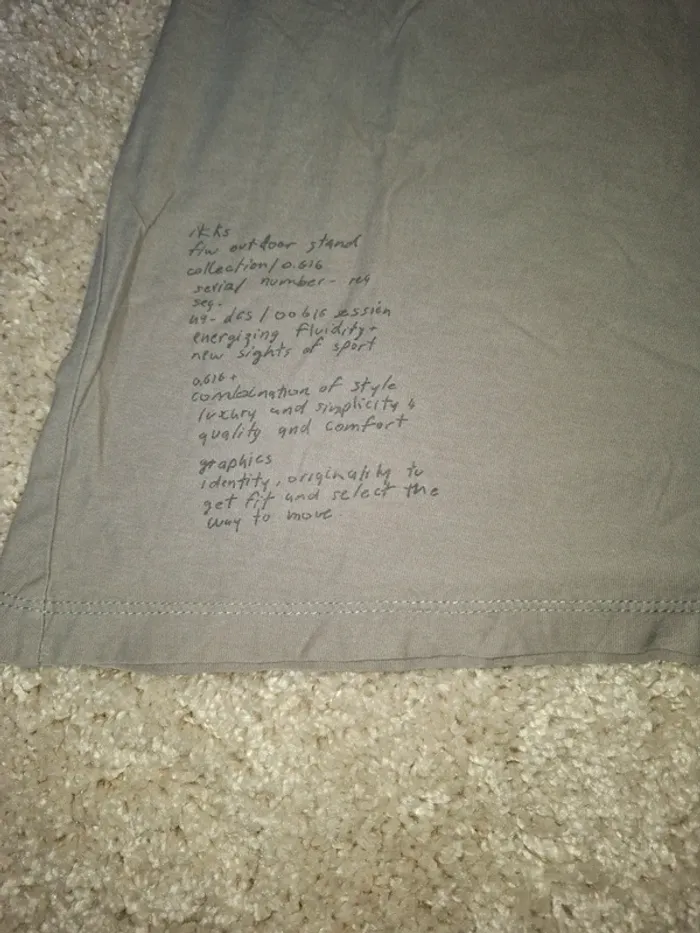 ikks
f/w outdoor stand
collection/0.616
serial number- req
seq.
49- dcs/00616 session
energizing fluidity+
new sights of sport
0.616+
combination of style
luxury and simplicity &
quality and comfort
graphics
identity, originality to
get fit and select the
way to move